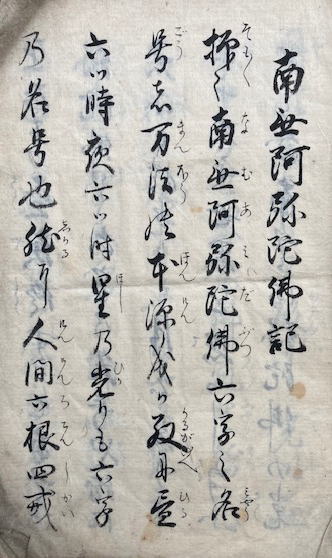 南無阿弥陀佛記
抑々南無阿弥陀佛六字之名
号者万法能本源成り故に昼
六ツ時夜六ツ時星乃光りも六字
乃名号也然に人間六根四戒